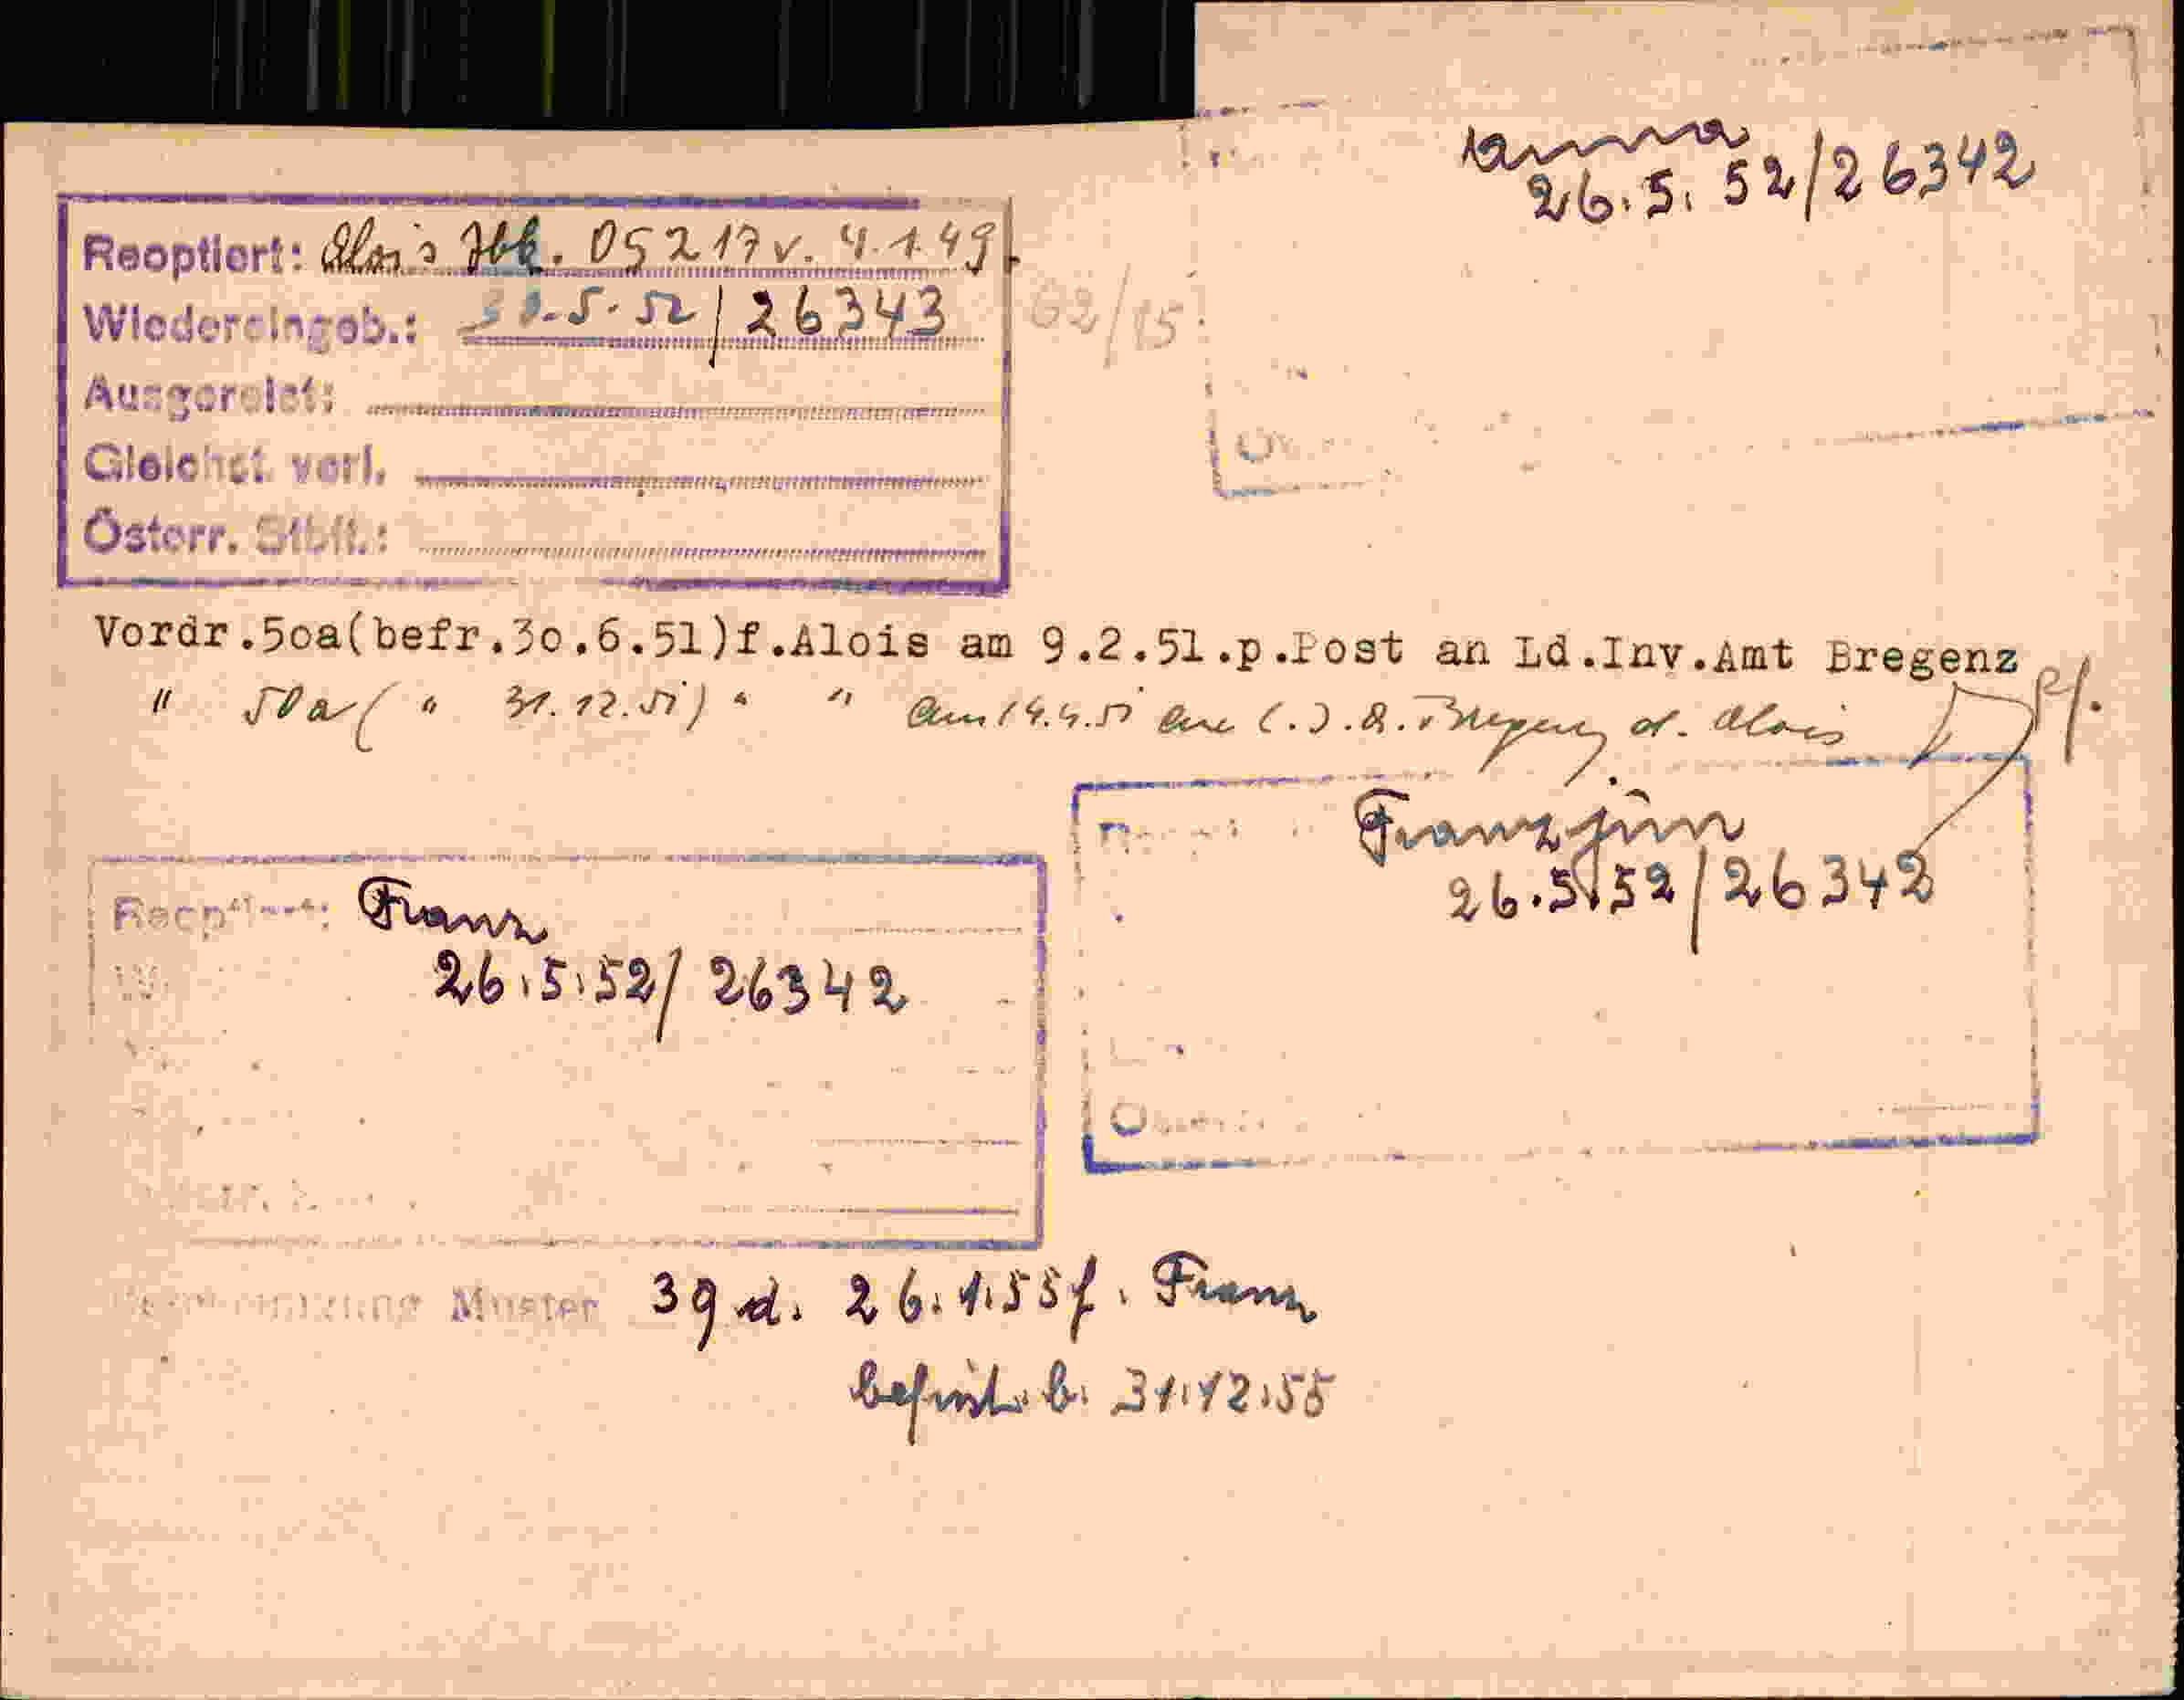 anna
26.5.52/26342
Reoptiert: Alois Ibk. 05217 v. 4.1.49.
Wiedereingeb.: 5.52/26343
62/15
Ausgereist:
Gleichst. verl.
Österr. Stbft.:
Vordr.5oa(befr.3o.6.51)f.Alois am 9.2.51.p.Post an Ld.Inv.Amt Bregenz
" 50a ( " 31.12.51) " " am Bregenz Alois
Franz jun
26.5.52/26342
Reoptiert: Franz
26.5.52/26342
Muster 39 d. 26.1.55 f. Franz
befrist. b. 31.12.55